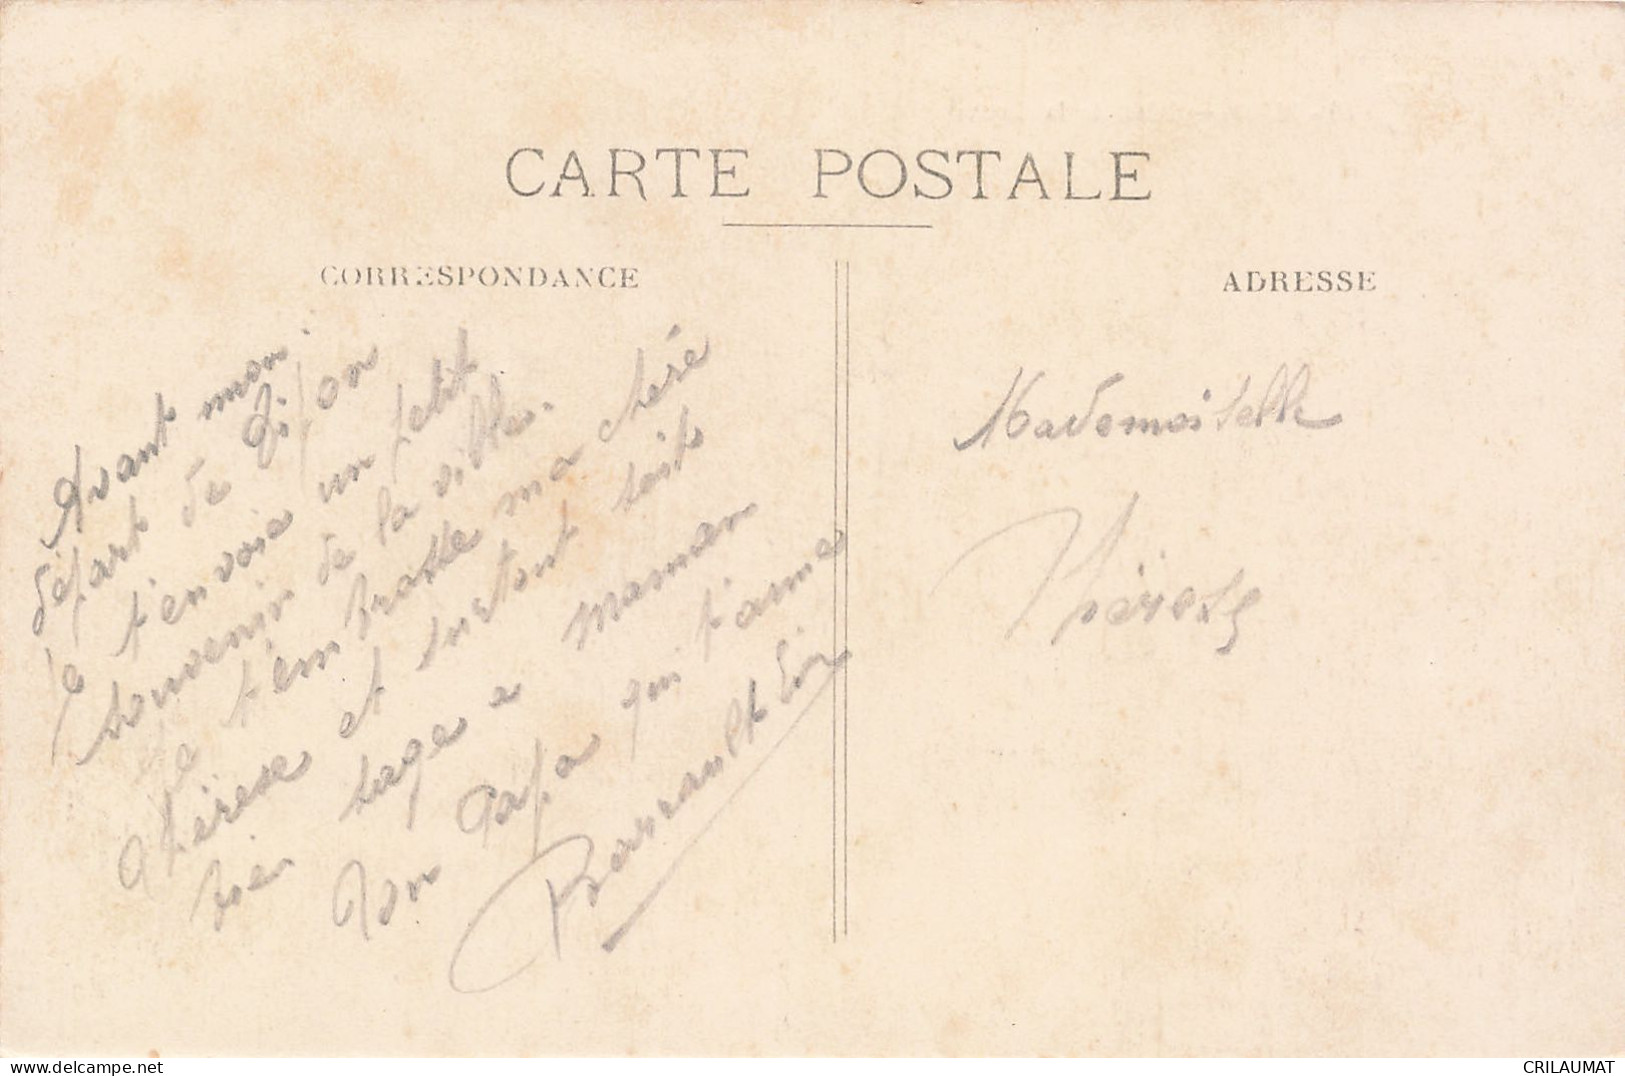 CARTE POSTALE
CORRESPONDANCE
ADRESSE
Avant mon
départ de Dijon
Je t'envoie un petit
souvenir de la ville.
Je t'embrasse ma chéré
Thérèse et surtout soit
bien sage a Maman
Ton Papa qui t'aime
Mademoiselle
Thérèse
CRILAUMAT